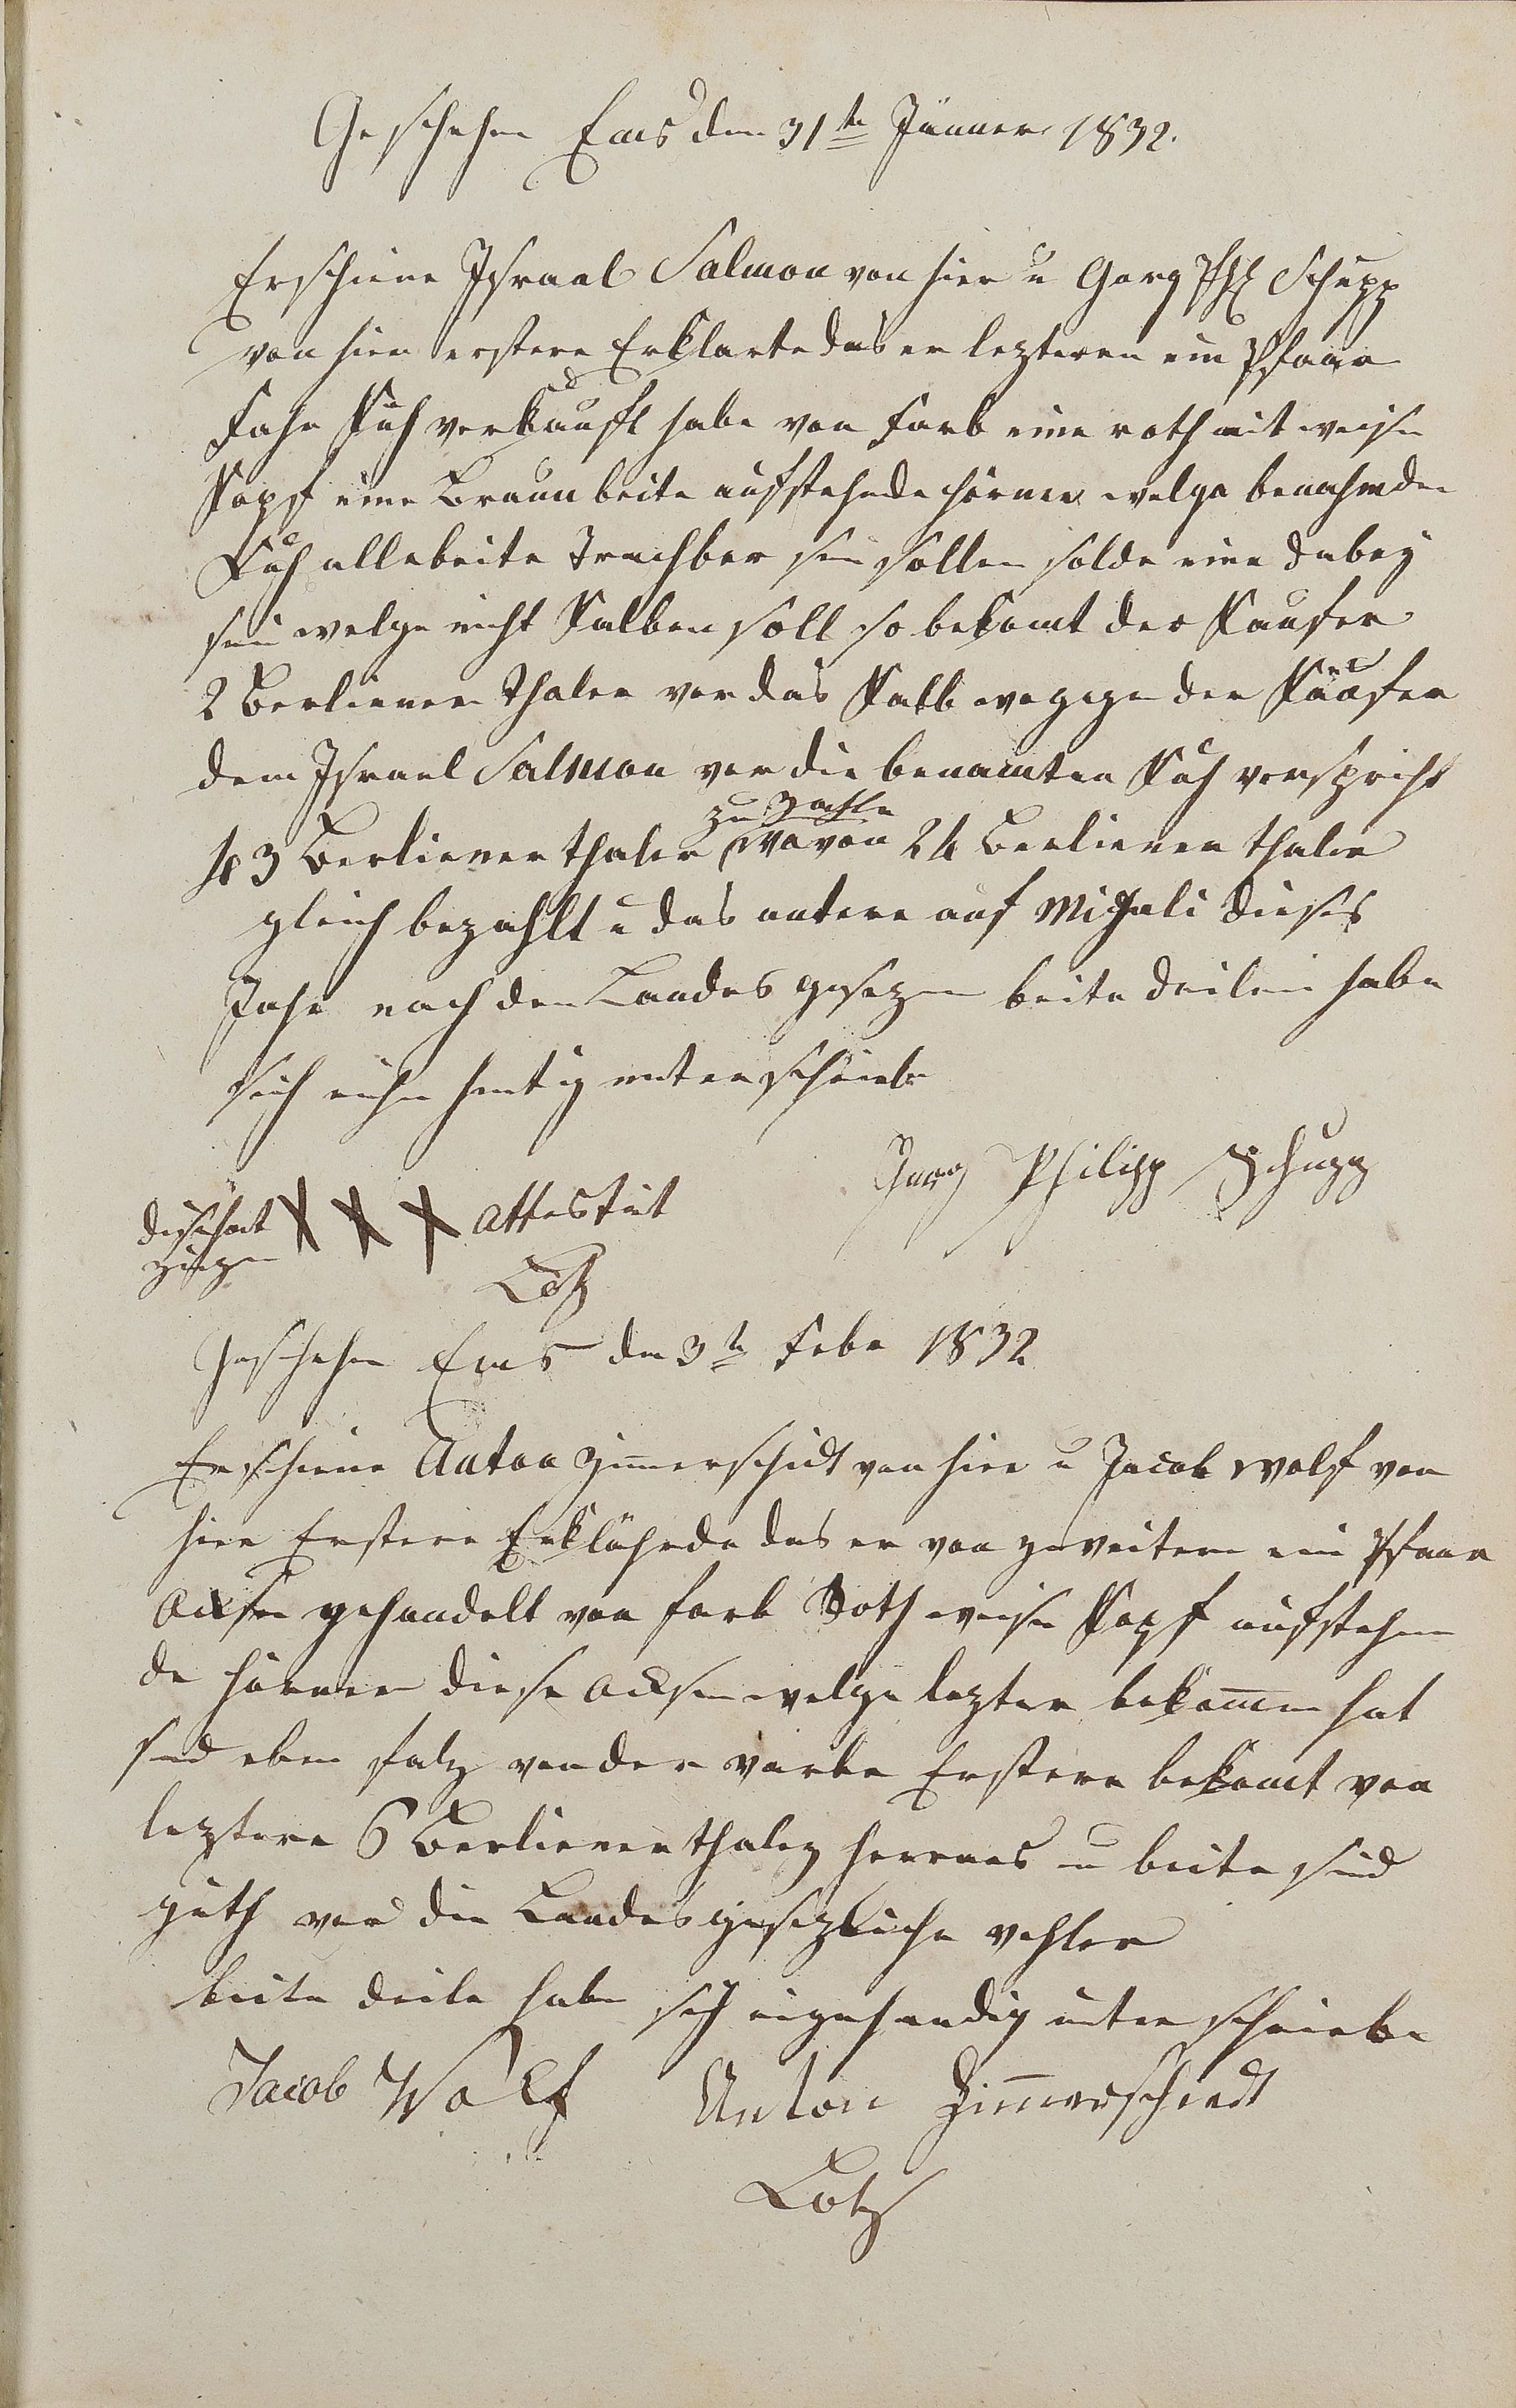 Geschehen Ems den 31te Jänner 1832.
Erschiene Israel Salmon von hier u Gorg Phl Schupp
von hier erstere Erklarte das er lezteren ein Pfaar
Fahr Kuh verkauft habe von Farb eine roth mit weise
Kopf eine Braun beite aufstehende hörner welge benahmde
Kuh alle beite Trachber sein sollen solde eine dabey
sein welge nicht Kalben soll so bekomt der Kaufer
2 Berliener Thaler vor das Kalb wogegen der Käufer
dem Israel Salmon vor die benamten Kuh verspricht
zu Zahle
43 Berliener thaler wovon 24 Berliener thaler
gleich bezahlt u das antere auf Michali dieses
Jahr nach den Landes gesezen beite deilen habe
sich eichehentig unterschriebe
Gorg Philipp Schupp
diese hat XXX Attestirt
Lotz
Geschehen Ems den 3te Febr 1832
Erschiene Anton Zimerschidt von hier u Jacob Wolf von
hier Erstere Erklährde das er von zweitere ein Pfaar
Ocksen gehandelt von farb Roth weise Kopf aufstehen
de hörner diese Ocksen welge lezter bekomen hat
sind eben falz von der varbe Erstere bekomt von
leztere 6 Berliener thaler herraus u beite sind
guth vor die Landesgesezliche vehler
beite deile habe sich eigehendig unterschriebe
Jacob Wolf Anton Zimmerschiedt
Lotz